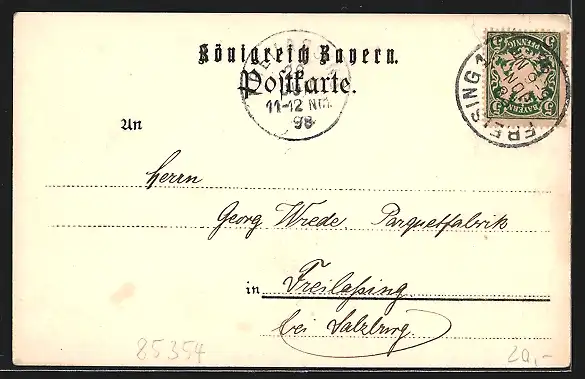 Königreich Bayern.
Postkarte.
11-12 Nm.
98
FREISING
PFENNIG
BAYERN
5
5
An
Herrn
Georg Wrede, Parquetfabrik
in Freilaßing
bei Salzburg.
85354
20,-